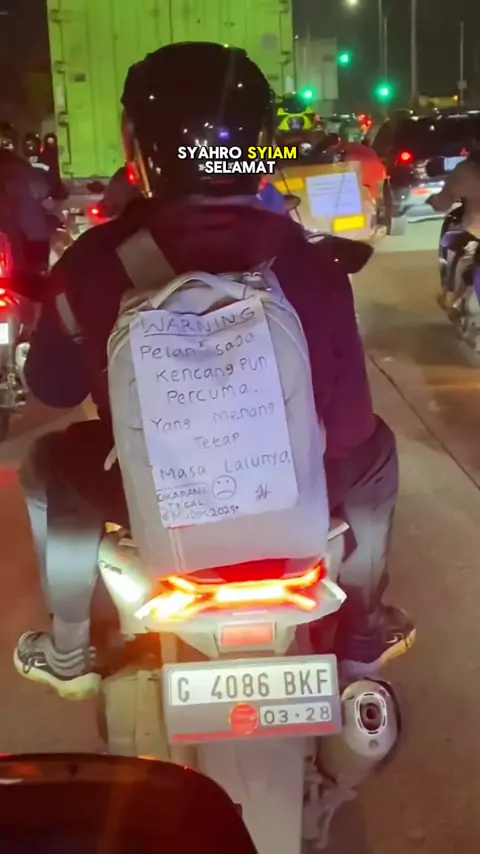 SYAHRO SYIAM
SELAMAT
WARNING
Pelan² saja
Kencang Pun
Percuma.
Yang Menang
Tetap
Masa Lalunya.
CIKARANG
TEGAL
MUDIK 2025
G 4086 BKF
03·28